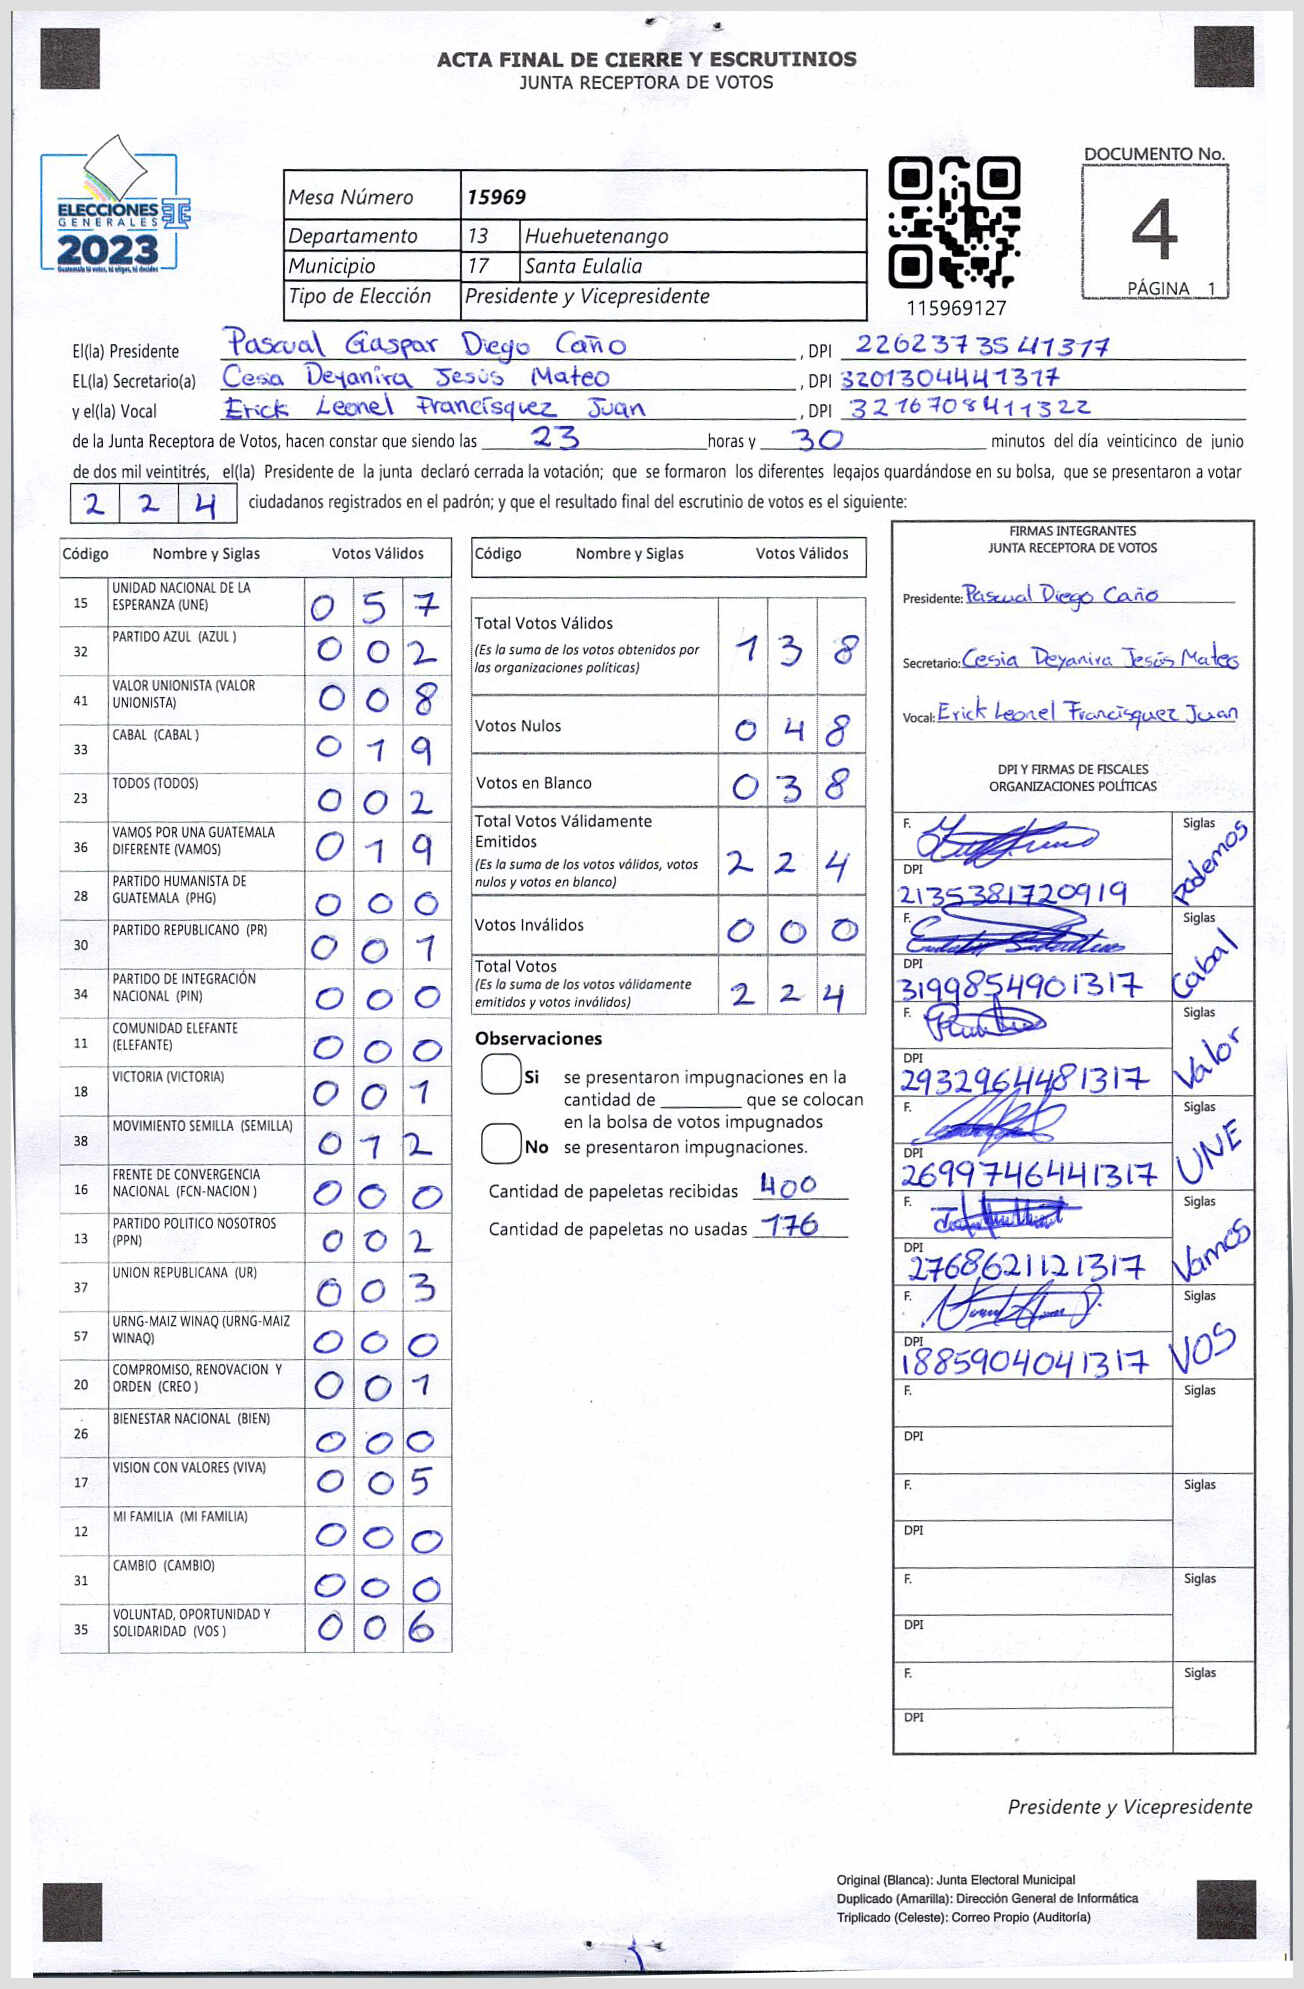 ACTA FINAL DE CIERRE Y ESCRUTINIOS
JUNTA RECEPTORA DE VOTOS
ELECCIONES
GENERALES
2023
Guatemala tú votas, tú eliges, tú decides
Mesa Número 15969
Departamento 13 Huehuetenango
Municipio 17 Santa Eulalia
Tipo de Elección Presidente y Vicepresidente
115969127
DOCUMENTO No.
4
PÁGINA 1
El(la) Presidente Pascual Gaspar Diego Caño , DPI 2262373541317
EL(la) Secretario(a) Cesia Deyanira Jesús Mateo , DPI 3201304441317
y el(la) Vocal Erick Leonel Francisquez Juan , DPI 3216708411322
de la Junta Receptora de Votos, hacen constar que siendo las 23 horas y 30 minutos del día veinticinco de junio
de dos mil veintitrés, el(la) Presidente de la junta declaró cerrada la votación; que se formaron los diferentes legajos guardándose en su bolsa, que se presentaron a votar
2 2 4 ciudadanos registrados en el padrón; y que el resultado final del escrutinio de votos es el siguiente:
Código Nombre y Siglas Votos Válidos
15 UNIDAD NACIONAL DE LA ESPERANZA (UNE) 0 5 7
32 PARTIDO AZUL (AZUL ) 0 0 2
41 VALOR UNIONISTA (VALOR UNIONISTA) 0 0 8
33 CABAL (CABAL ) 0 1 9
23 TODOS (TODOS) 0 0 2
36 VAMOS POR UNA GUATEMALA DIFERENTE (VAMOS) 0 1 9
28 PARTIDO HUMANISTA DE GUATEMALA (PHG) 0 0 0
30 PARTIDO REPUBLICANO (PR) 0 0 1
34 PARTIDO DE INTEGRACIÓN NACIONAL (PIN) 0 0 0
11 COMUNIDAD ELEFANTE (ELEFANTE) 0 0 0
18 VICTORIA (VICTORIA) 0 0 1
38 MOVIMIENTO SEMILLA (SEMILLA) 0 1 2
16 FRENTE DE CONVERGENCIA NACIONAL (FCN-NACION ) 0 0 0
13 PARTIDO POLITICO NOSOTROS (PPN) 0 0 2
37 UNION REPUBLICANA (UR) 0 0 3
57 URNG-MAIZ WINAQ (URNG-MAIZ WINAQ) 0 0 0
20 COMPROMISO, RENOVACION Y ORDEN (CREO ) 0 0 1
26 BIENESTAR NACIONAL (BIEN) 0 0 0
17 VISION CON VALORES (VIVA) 0 0 5
12 MI FAMILIA (MI FAMILIA) 0 0 0
31 CAMBIO (CAMBIO) 0 0 0
35 VOLUNTAD, OPORTUNIDAD Y SOLIDARIDAD (VOS ) 0 0 6
Código Nombre y Siglas Votos Válidos
Total Votos Válidos
(Es la suma de los votos obtenidos por
las organizaciones políticas) 1 3 8
Votos Nulos 0 4 8
Votos en Blanco 0 3 8
Total Votos Válidamente
Emitidos
(Es la suma de los votos válidos, votos
nulos y votos en blanco) 2 2 4
Votos Inválidos 0 0 0
Total Votos
(Es la suma de los votos válidamente
emitidos y votos inválidos) 2 2 4
Observaciones
Si se presentaron impugnaciones en la
cantidad de ________ que se colocan
en la bolsa de votos impugnados
No se presentaron impugnaciones.
Cantidad de papeletas recibidas 400
Cantidad de papeletas no usadas 176
FIRMAS INTEGRANTES
JUNTA RECEPTORA DE VOTOS
Presidente: Pascual Diego Caño
Secretario: Cesia Deyanira Jesús Mateo
Vocal: Erick Leonel Francisquez Juan
DPI Y FIRMAS DE FISCALES
ORGANIZACIONES POLÍTICAS
F. Siglas Podemos
DPI 2135381720919
F. Siglas Cabal
DPI 3199854901317
F. Siglas Valor
DPI 2932964481317
F. Siglas UNE
DPI 2699746441317
F. Siglas Vamos
DPI 2768621121317
F. Siglas VOS
DPI 1885904041317
F. Siglas
DPI
F. Siglas
DPI
F. Siglas
DPI
F. Siglas
DPI
Presidente y Vicepresidente
Original (Blanca): Junta Electoral Municipal
Duplicado (Amarilla): Dirección General de Informática
Triplicado (Celeste): Correo Propio (Auditoría)